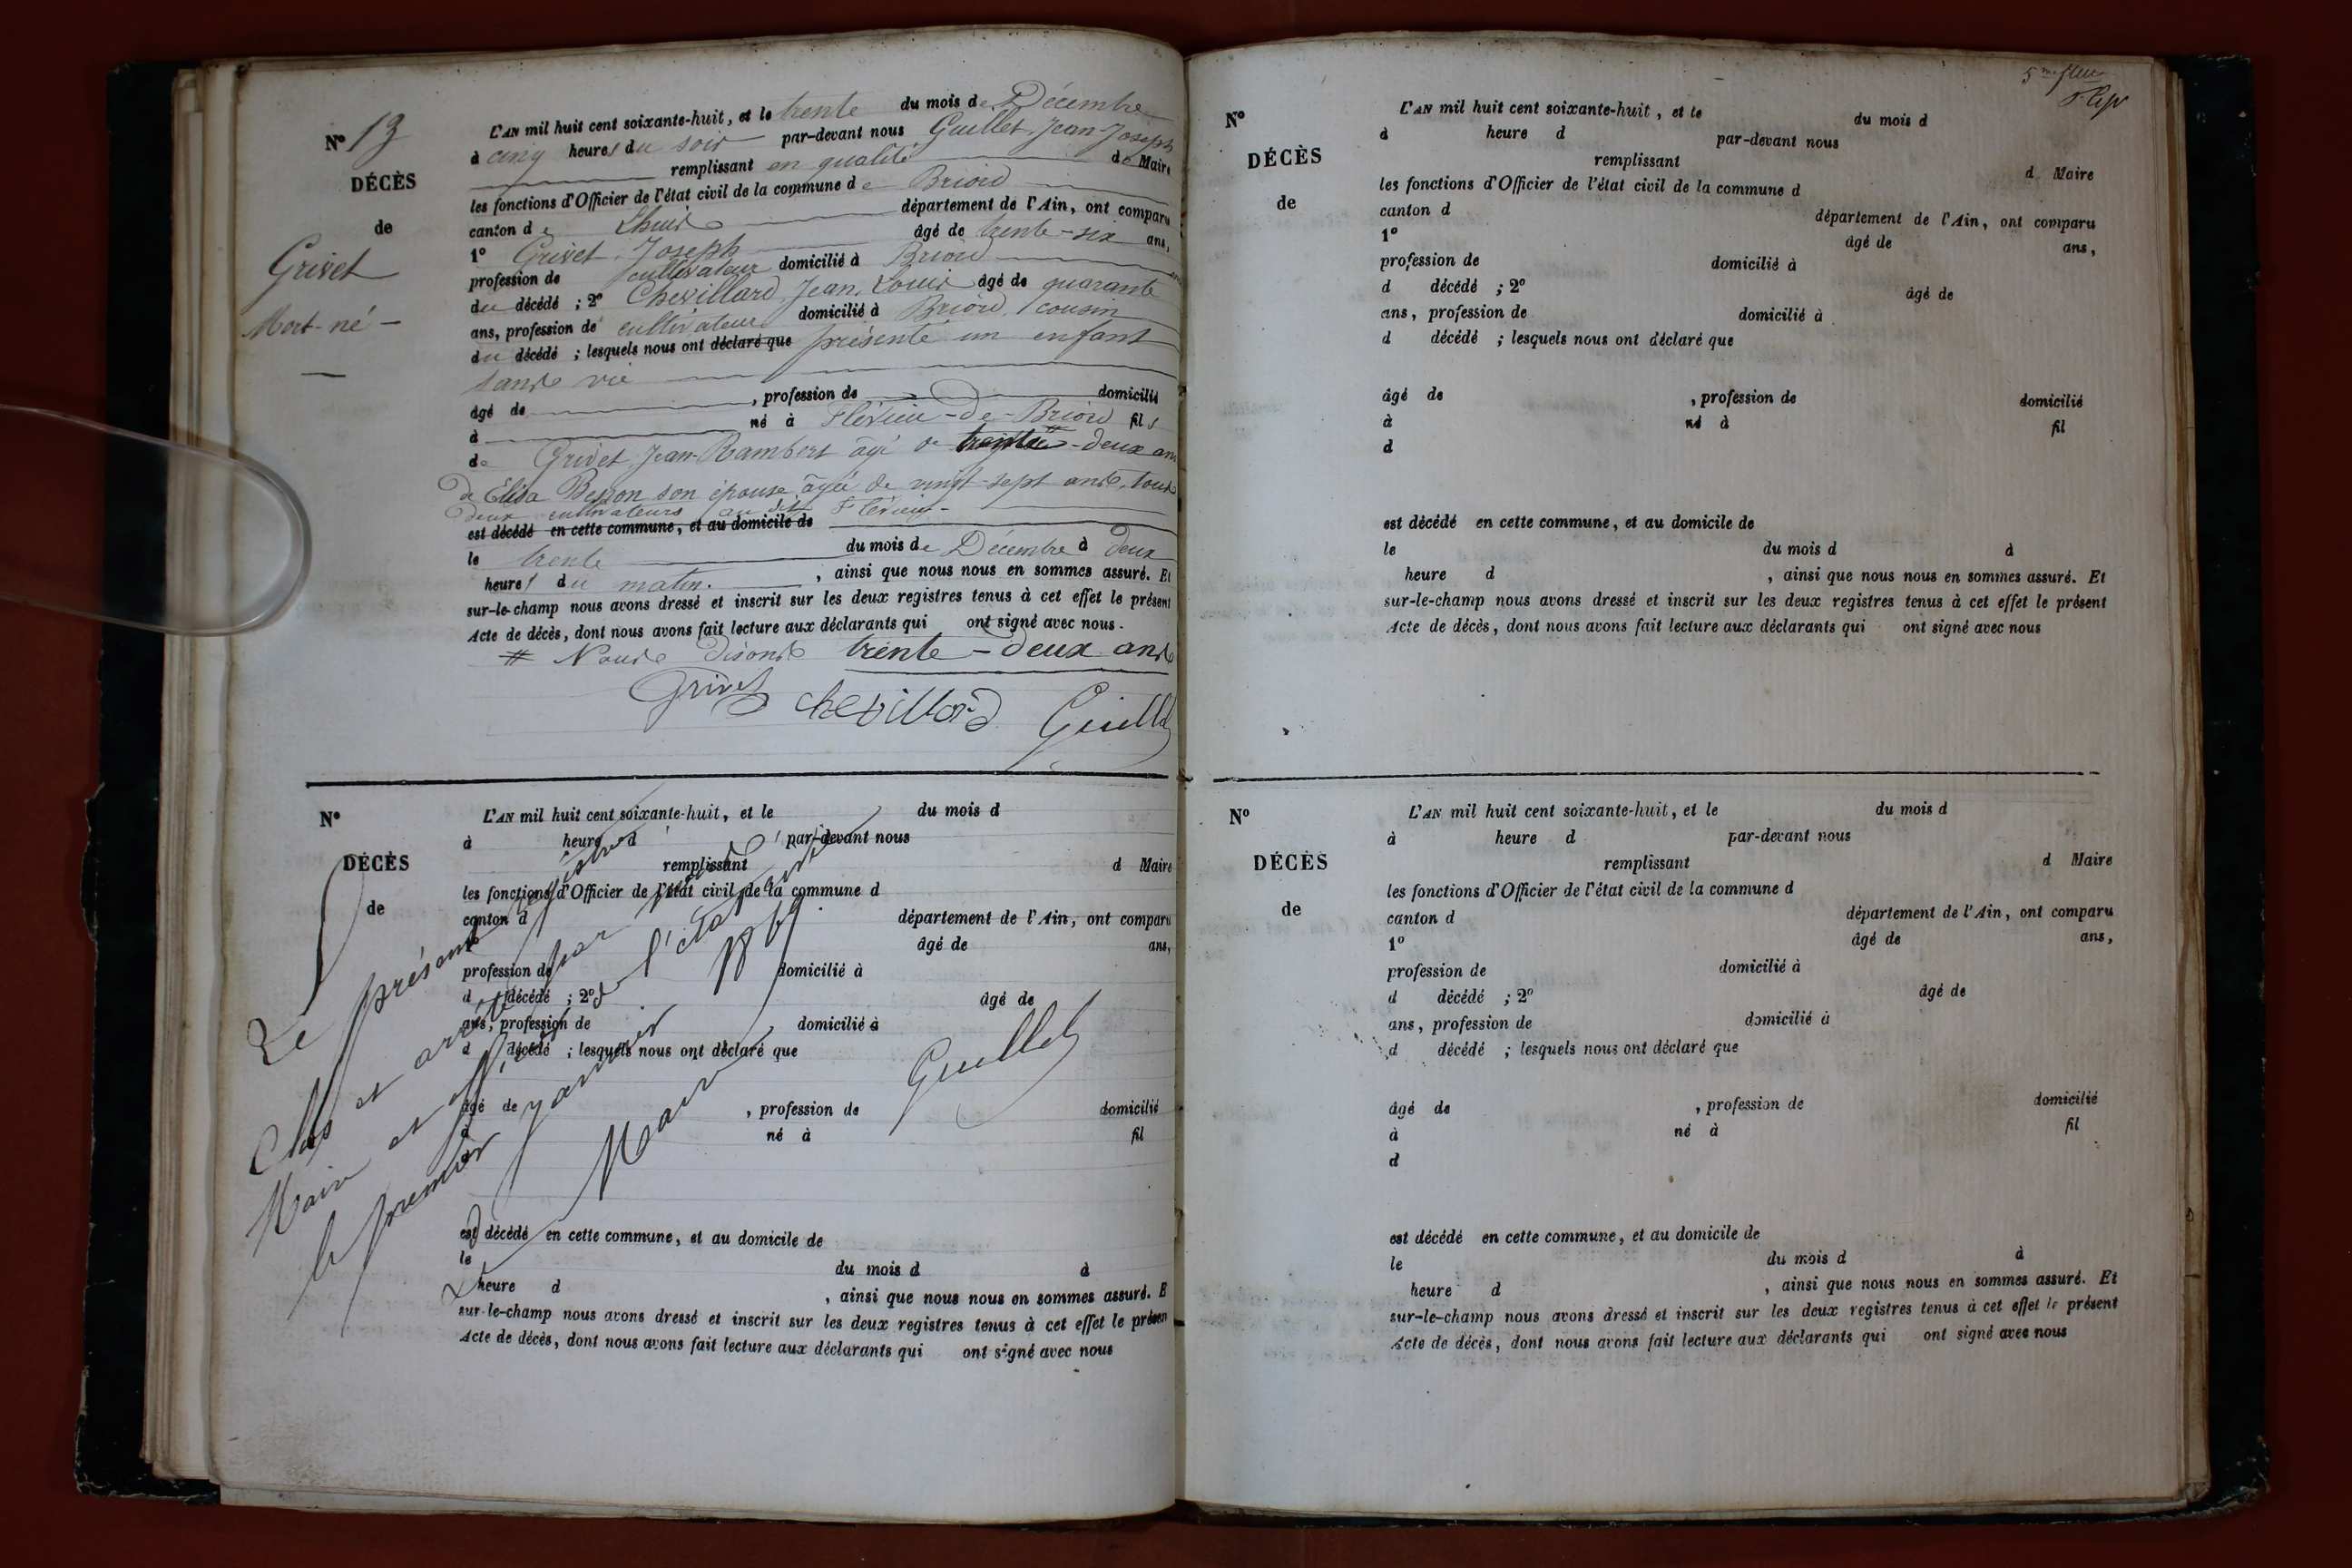 N° 13
DÉCÈS
de
Grivet
Mort-né —
L'AN mil huit cent soixante-huit, et le trente du mois de Décembre
à cinq heures du soir par-devant nous Guillet, Jean-Joseph
remplissant en qualité de Maire
les fonctions d'Officier de l'état civil de la commune de Briord
canton de Lhuis département de l'Ain, ont comparu
1° Grivet, Joseph âgé de trente-six ans,
profession de cultivateur domicilié à Briord
du décédé ; 2° Chevillard, Jean, Louis âgé de quarante
ans, profession de cultivateur domicilié à Briord, cousin
du décédé ; lesquels nous ont déclaré que présenté un enfant
sans vie
âgé de , profession de domicilié
à né à Flévieu-de-Briord fils
de Grivet, Jean-Rambert âgé de -deux ans
de Elisa Besson son épouse âgée de vingt-sept ans, tous
deux cultivateurs au dit Flévieu-
est décédé en cette commune, et au domicile de
le trente du mois de Décembre à deux
heures du matin. , ainsi que nous nous en sommes assuré. Et
sur-le-champ nous avons dressé et inscrit sur les deux registres tenus à cet effet le présent
Acte de décès, dont nous avons fait lecture aux déclarants qui ont signé avec nous.
# Nous disons trente-deux ans
Grivet Chevillard Guillet
N°
DÉCÈS
de
L'AN mil huit cent soixante-huit, et le du mois d
à heure d par-devant nous
remplissant d Maire
les fonctions d'Officier de l'état civil de la commune d
canton d département de l'Ain, ont comparu
âgé de ans,
profession de domicilié à
d décédé ; 2° âgé de
ans, profession de domicilié à
d décédé ; lesquels nous ont déclaré que
âgé de , profession de domicilié
né à fil
est décédé en cette commune, et au domicile de
le du mois d à
heure d , ainsi que nous nous en sommes assuré. E
sur-le-champ nous avons dressé et inscrit sur les deux registres tenus à cet effet le présen
Acte de décès, dont nous avons fait lecture aux déclarants qui ont signé avec nous
Le présent registre
Clos et arrêté par nous
Maire et officier de l'état civil
le premier janvier 1869
Le Maire
Guillet
5me
N°
DÉCÈS
de
L'AN mil huit cent soixante-huit, et le du mois d
à heure d par-devant nous
remplissant d Maire
les fonctions d'Officier de l'état civil de la commune d
canton d département de l'Ain, ont comparu
1° âgé de ans,
profession de domicilié à
d décédé ; 2° âgé de
ans, profession de domicilié à
d décédé ; lesquels nous ont déclaré que
âgé de , profession de domicilié
à né à fil
d
est décédé en cette commune, et au domicile de
le du mois d à
heure d , ainsi que nous nous en sommes assuré. Et
sur-le-champ nous avons dressé et inscrit sur les deux registres tenus à cet effet le présent
Acte de décès, dont nous avons fait lecture aux déclarants qui ont signé avec nous
N°
DÉCÈS
de
L'AN mil huit cent soixante-huit, et le du mois d
à heure d par-devant nous
remplissant d Maire
les fonctions d'Officier de l'état civil de la commune d
canton d département de l'Ain, ont comparu
1° âgé de ans,
profession de domicilié à
d décédé ; 2° âgé de
ans, profession de domicilié à
d décédé ; lesquels nous ont déclaré que
âgé de , profession de domicilié
à né à fil
d
est décédé en cette commune, et au domicile de
le du mois d à
heure d , ainsi que nous nous en sommes assuré. Et
sur-le-champ nous avons dressé et inscrit sur les deux registres tenus à cet effet le présent
Acte de décès, dont nous avons fait lecture aux déclarants qui ont signé avec nous